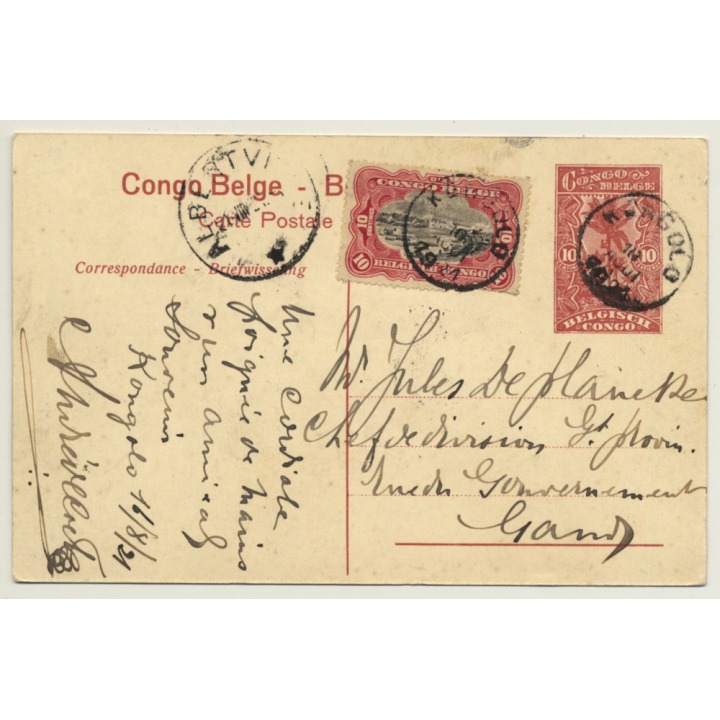 Congo Belge - B
Carte Postale
Correspondance - Briefwisseling
CONGO BELGE
10
10
10
BELGISCH CONGO
KONGOLO
ALBERTVI
CONGO BELGE
10 10
BELGISCH CONGO
KONGOLO
Une Cordiale
poignée de mains
d'un amical
Souvenir
Kongolo 16/8/21
Mr. Jules De Plancke
Chef de division Gt. Provin.
rue du Gouvernement
Gand